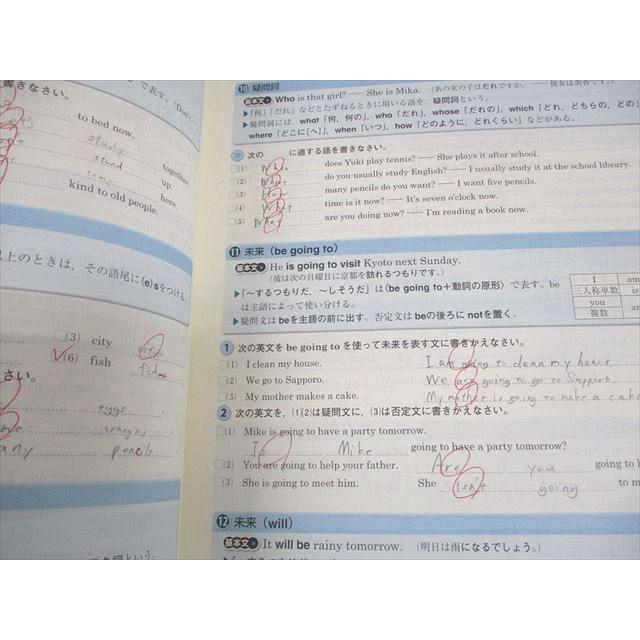 書きなさい。
で表す。(Don't
to bed now.
study
together.
stand
up.
come
here.
kind to old people.
以上のときは，その語尾に(e)sをつける。
(3) city
(6) fish
さい。
eggs
oranges
pencils
10 疑問詞
基本文 Who is that girl? —— She is Mika. (あの女の子はだれですか。
▶「何」「だれ」などとたずねるときに用いる語を，疑問詞という。
▶疑問詞には，what「何，何の」，who「だれ」，whose「だれの」，which「どれ，どちらの，どの」
where「どこに[へ]」，when「いつ」，how「どのように，どれくらい」などがある。
次の に適する語を書きなさい。
(1) When does Yuki play tennis? —— She plays it after school.
(2) Where do you usually study English? —— I usually study it at the school library.
(3) How many pencils do you want? —— I want five pencils.
(4) What time is it now? —— It's seven o'clock now.
(5) What are you doing now? —— I'm reading a book now.
11 未来 (be going to)
基本文 He is going to visit Kyoto next Sunday.
(彼は次の日曜日に京都を訪れるつもりです。)
▶「〜するつもりだ，〜しそうだ」は〈be going to＋動詞の原形〉で表す。be
は主語によって使い分ける。
▶疑問文はbeを主語の前に出す。否定文はbeの後ろに notを置く。
I am
三人称単数 is
you
複数 ar
1 次の英文を be going to を使って未来を表す文に書きかえなさい。
(1) I clean my house. I am going to clean my house
(2) We go to Sapporo. We are going to go to Sapporo
(3) My mother makes a cake. My mother is going to make a cake
2 次の英文を，(1)(2)は疑問文に，(3)は否定文に書きかえなさい。
(1) Mike is going to have a party tomorrow.
Is Mike going to have a party tomorrow?
(2) You are going to help your father. Are you going to h
(3) She is going to meet him. She isn't going to m
12 未来 (will)
基本文 It will be rainy tomorrow. (明日は雨になるでしょう。)